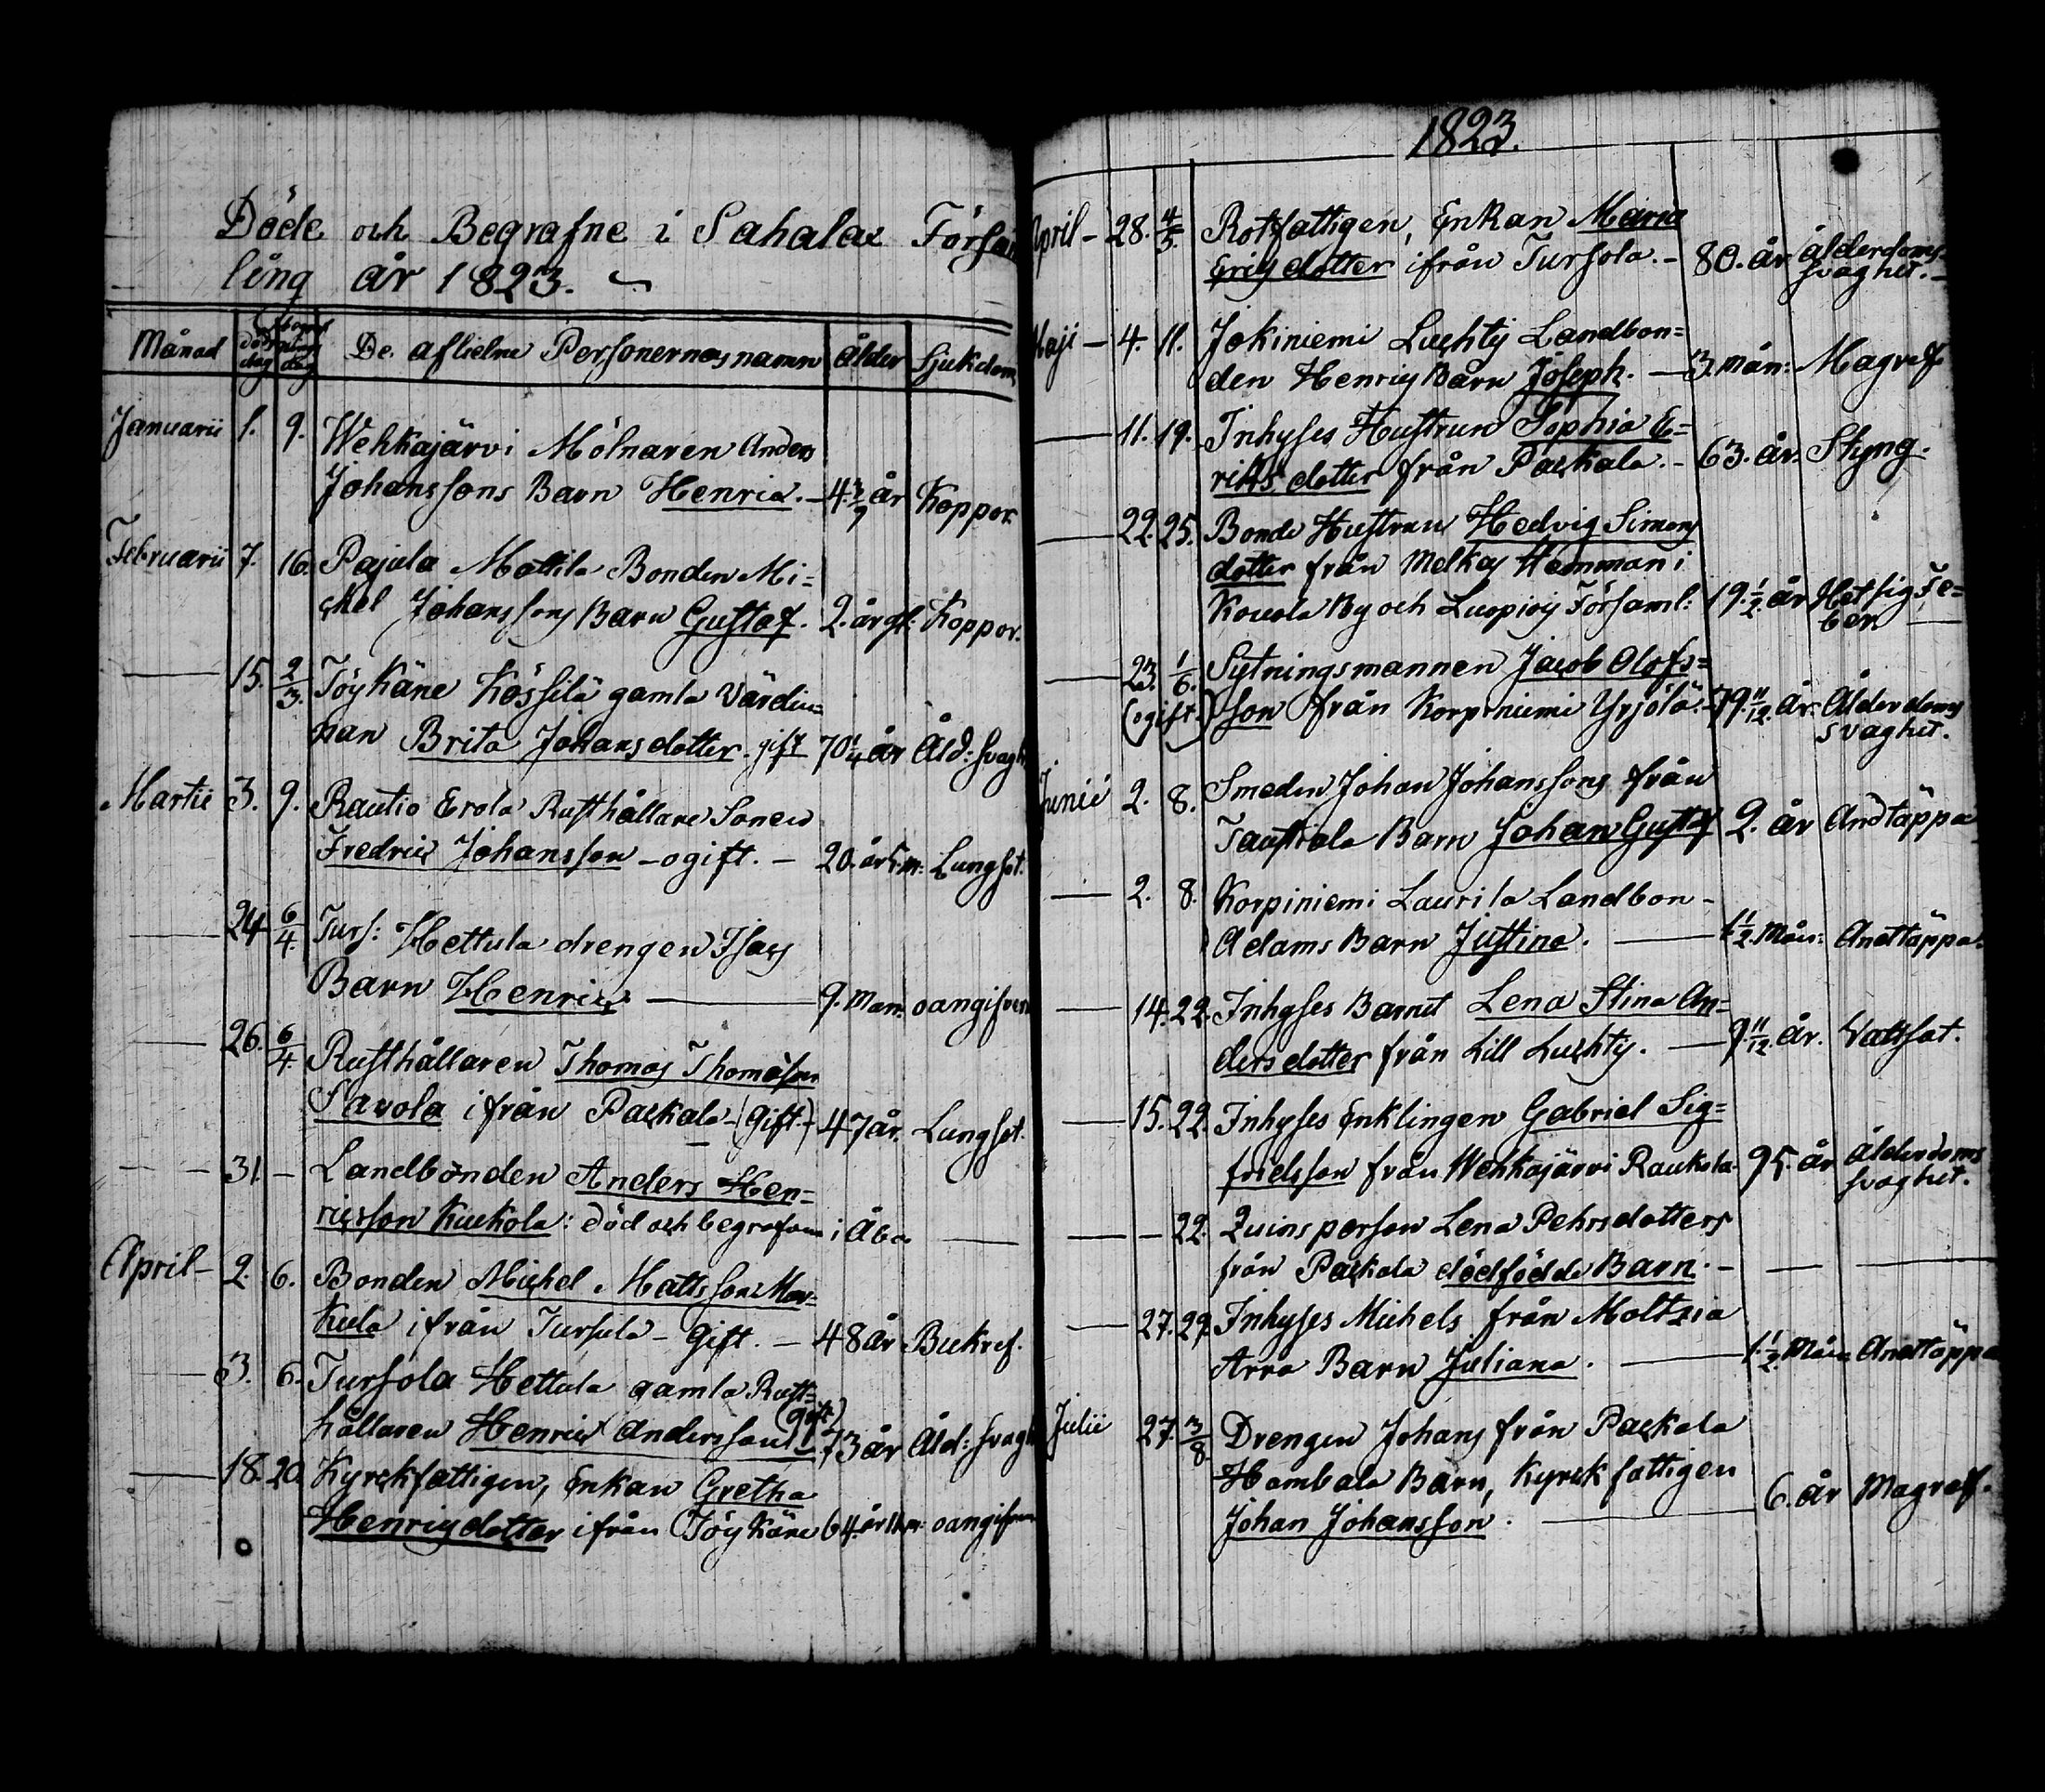 Döde och Begrafne i Sahalax Försam
ling år 1823.
Månad död dag begrafnings dag De aflidne Personernas namn Ålder Sjukdom
Januarii 1. 9. Wehkajärvi Mölnaren Anders
Johanssons Barn Henric. 4 3/9 år Koppor.
Februarii 7. 16. Pajula Mattila Bonden Mi=
chel Johanssons Barn Gustaf. 2. år gl: Koppor.
15. 2/3. Töykäne Kössilä gamla Värdin=
nan Brita Johansdotter - gift 70 1/4 år Åld: svagh
Martii 3. 9. Rautio Erola Rusthållare Sonen
Fredric Johansson - ogift. - 20. år 5. m: Lungsot.
24 6/4. Turs: Hettula drengen Isacs
Barn Henric 9. Mån: oangifven
26. 6/4. Rusthållaren Thomas Thomasson
Savola ifrån Packala - (Gift.) - 47 år. Lungsot.
31 - Landbonden Anders Hen=
ricsson Kuckola: död och begrafven i Åbo
April - 2. 6. Bonden Michel Mattsson Mar=
kula ifrån Tursula - Gift. - 48 år Bukref.
3. 6. Tursola Hettula gamla Rust=
hållaren Henric Andersson (gift) 73 år Åld: svagh
18. 20. Kyrckfattigen, Enkan Gretha
Henricsdotter ifrån Töykäne 64. år 11. m: oangifven
1823.
April - 28. 4/5. Rotfattigen, Enkan Maria
Ericsdotter ifrån Tursola. - 80. år Ålderdoms
svaghet. -
Maji - 4. 11. Jokiniemi Luchty Landbon=
den Henrics Barn Joseph. - 3. Mån: Magref
11. 19. Inhyses Hustrun Sophia E=
riks dotter från Packala. - 63. år. Styng.
22. 25. Bonde Hustrun Hedvig Simons
dotter från Melkas Hemman i
Kouola By och Luopiois Församl: 19. 1/2. år Hetsig Fe=
ber
23. 1/6. Sytningsmannen Jacob Olofs=
(ogift.) son från Korpiniemi Yrjölä. - 79 11/12. år. Ålderdoms
svaghet.
Junii 2. 8. Smeden Johan Johanssons från
Taustiala Barn Johan Gustaf 2. år Andtäppa
2. 8. Korpiniemi Laurila Landbon-
Adams Barn Justina. 1 1/2. Mån: Andtäppa.
14. 22. Inhyses Barnet Lena Stina An=
dersdotter från Lill Luchty. - 9. 11/12. år. Vattsot.
15. 22. Inhyses Enklingen Gabriel Sig=
fridsson från Wehkajärvi Raukola. 95. år Ålderdoms
svaghet.
- 22. Quinsperson Lena Pehrsdotters
från Packala dödfödda Barn. -
27. 29. Inhyses Michels från Moltzia
Arra Barn Juliana. 1. 1/2. Mån: Andtäppa
Julii 27. 3/8. Drengen Johans från Packala
Hambala Barn, Kyrckfattigen
Johan Johansson. 6. år Magref.